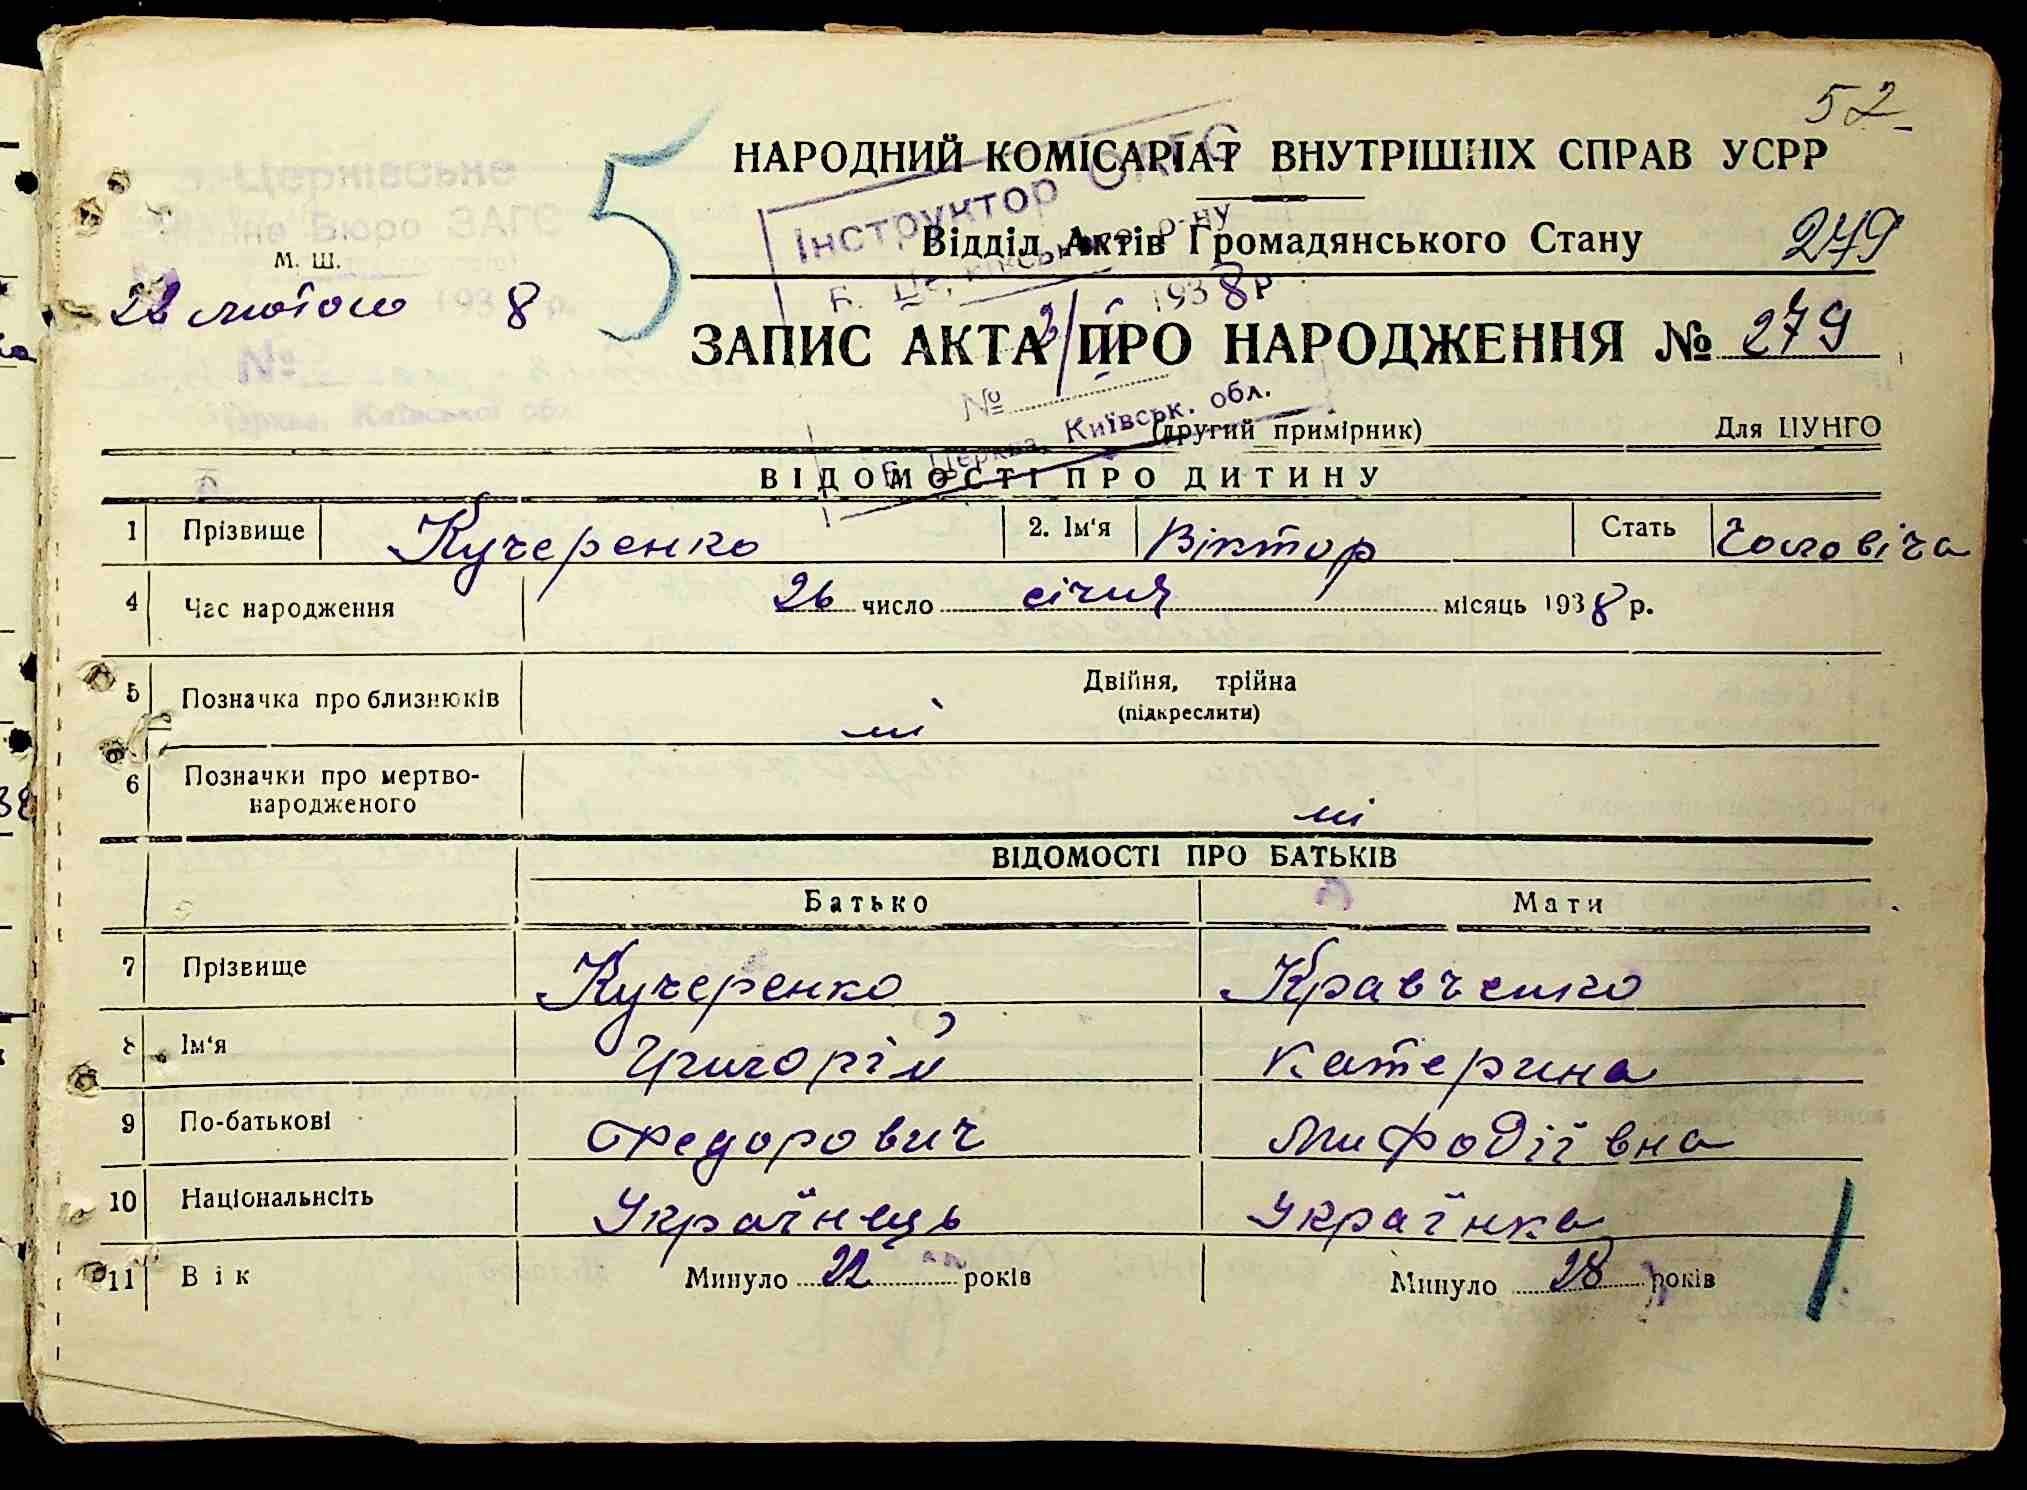 52
НАРОДНИЙ КОМІСАРІАТ ВНУТРІШНІХ СПРАВ УСРР
Відділ Актів Громадянського Стану 279
Інструктор
р-ну
1938 р.
№
Церква, Київськ. обл.
М. Ш.
лютого 8
5
ЗАПИС АКТА ПРО НАРОДЖЕННЯ № 279
(другий примірник) Для ЦУНГО
ВІДОМОСТІ ПРО ДИТИНУ
1 Прізвище Кучеренко 2. Ім'я Віктор Стать Чоловіча
4 Час народження 26 число січня місяць 1938 р.
5 Позначка про близнюків Двійня, трійна
(підкреслити)
ні
6 Позначки про мертво-
народженого ні
ВІДОМОСТІ ПРО БАТЬКІВ
Батько Мати
7 Прізвище Кучеренко Кравченко
8 Ім'я Григорій Катерина
9 По-батькові Федорович Мифодіївна
10 Національнсіть Українець Українка
11 Вік Минуло 22 років Минуло 28 років